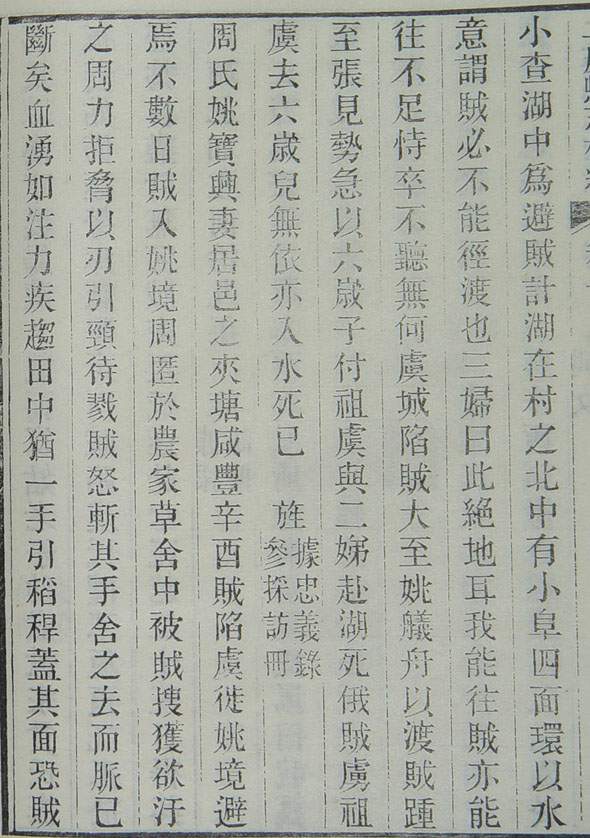 小查湖中爲避賊計湖在村之北中有小阜四面環以水
意謂賊必不能徑渡也三婦曰此絕地耳我能往賊亦能
往不足恃卒不聽無何虞城陷賊大至姚艤舟以渡賊踵
至張見勢急以六歲子付祖虞與二娣赴湖死俄賊虜祖
虞去六歲兒無依亦入水死已　旌據忠義錄
參採訪冊
周氏姚寶興妻居邑之夾塘咸豐辛酉賊陷虞徙姚境避
焉不數日賊入姚境周匿於農家草舍中被賊搜獲欲汙
之周力拒脅以刃引頸待戮賊怒斬其手舍之去而脈已
斷矣血湧如注力疾趨田中猶一手引稻稈蓋其面恐賊